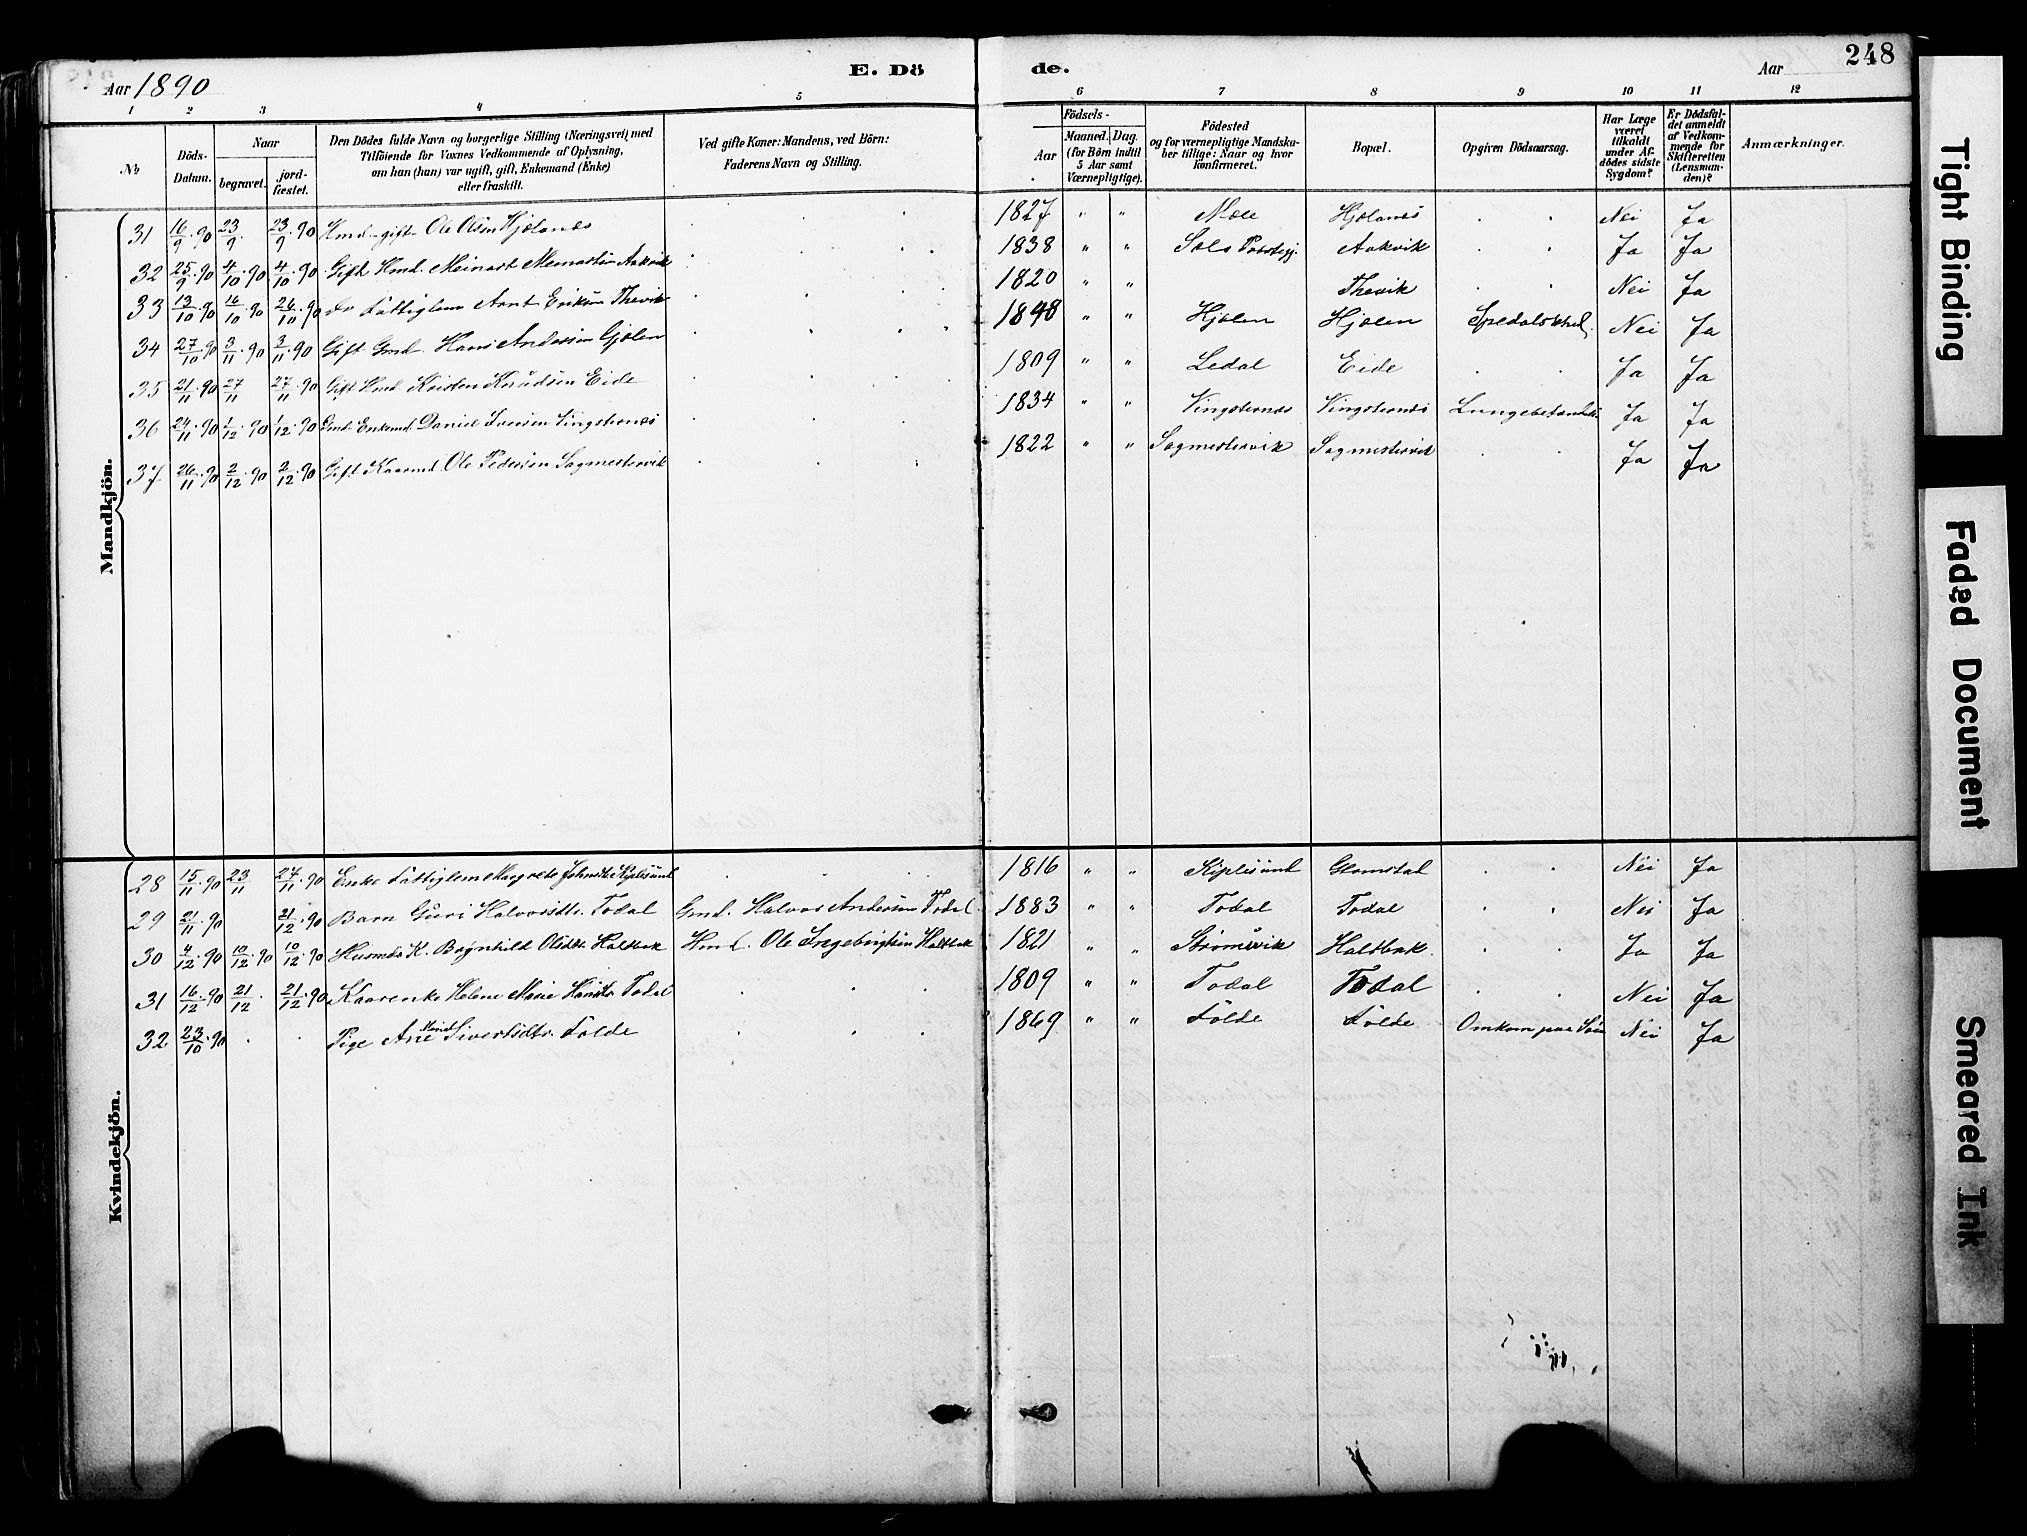 Aar 1890
E. Dö
de.
Aar
248
1 2 3 4 5 6 7 8 9 10 11 12
№
Döds-Datum.
Naar
begravet.
jord-fæstet.
Den Dödes fulde Navn og borgerlige Stilling (Næringsvei), med
Tilföiende for Voxnes Vedkommende af Oplysning,
om han (hun) var ugift, gift, Enkemand (Enke)
eller fraskilt.
Ved gifte Koner: Mandens, ved Börn:
Faderens Navn og Stilling.
Födsels-
Aar
Maaned.
Dag.
(for Börn indtil
5 Aar samt
Værnepligtige).
Födested
og for værnepligtige Mandska-
ber tillige: Naar og hvor
konfirmeret.
Bopæl.
Opgiven Dödsaarsag.
Har Læge
været
tilkaldt
under Af-
dödes sidste
Sygdom?
Er Dödsfal-
det anmeldt
af Vedkom-
mende for
Skifteretten
(Lensman-
den)?
Anmærkninger.
Mandkjön.
31 16/9 90 23/9 23/9 90 Hmd. gift Ole Olsen Hjelanes 1827 " " Moee Hjelanes Nei Ja
32 25/9 90 4/10 90 4/10 90 Gift Hmd. Meinart Aakvik 1838 " " Aakvik Ja Ja
33 13/10 90 16/10 90 26/10 90 Fattiglem Arnt Eriksen Thevik 1820 " " Thevik Nei Ja
34 27/10 90 3/11 90 3/11 90 Gift Gmd. Hans Andersen Gjølen 1848 " " Hjølen Hjølen Spedalskhed Nei Ja
35 21/11 90 27/11 27/11 90 Gift Hmd. Kristen Knudsen Eide 1809 " " Ledal Eide Ja Ja
36 24/11 90 1/12 90 1/12 90 Gmd. Enkemd. Daniel Iversen Vingsternes 1834 " " Vingsternes Vingsternes Ja Ja
37 26/11 90 2/12 90 2/12 90 Gift Kaarmd. Ole Pedersen Sagmestervik 1822 " " Sagmestervik Sagmestervik Ja Ja
Kvindekjön.
28 15/11 90 23/11 27/11 90 Enke Fattiglem Margrete 1816 " " Glomstad Nei Ja
29 21/11 90 21/12 90 Barn Guri Halvorsdtr. Todal Gmd. Halvor Andersen Todal 1883 " " Todal Todal Nei Ja
30 4/12 90 10/12 90 10/12 90 Husmds K. Brynhild Olsdtr. Haltbak Hmd. Ole Ingebrigtsen Haltbak 1821 " " Strømsvik Haltbak Ja Ja
31 16/12 90 21/12 21/12 90 Kaarenke Helene Marie Hansdtr Todal 1809 " " Todal Todal Nei Ja
32 23/10 90 Pige Ane Marie Sivertsdtr. Folde 1869 " " Folde Folde Omkom paa Søen Nei Ja
Tight Binding
Faded Document
Smeared Ink